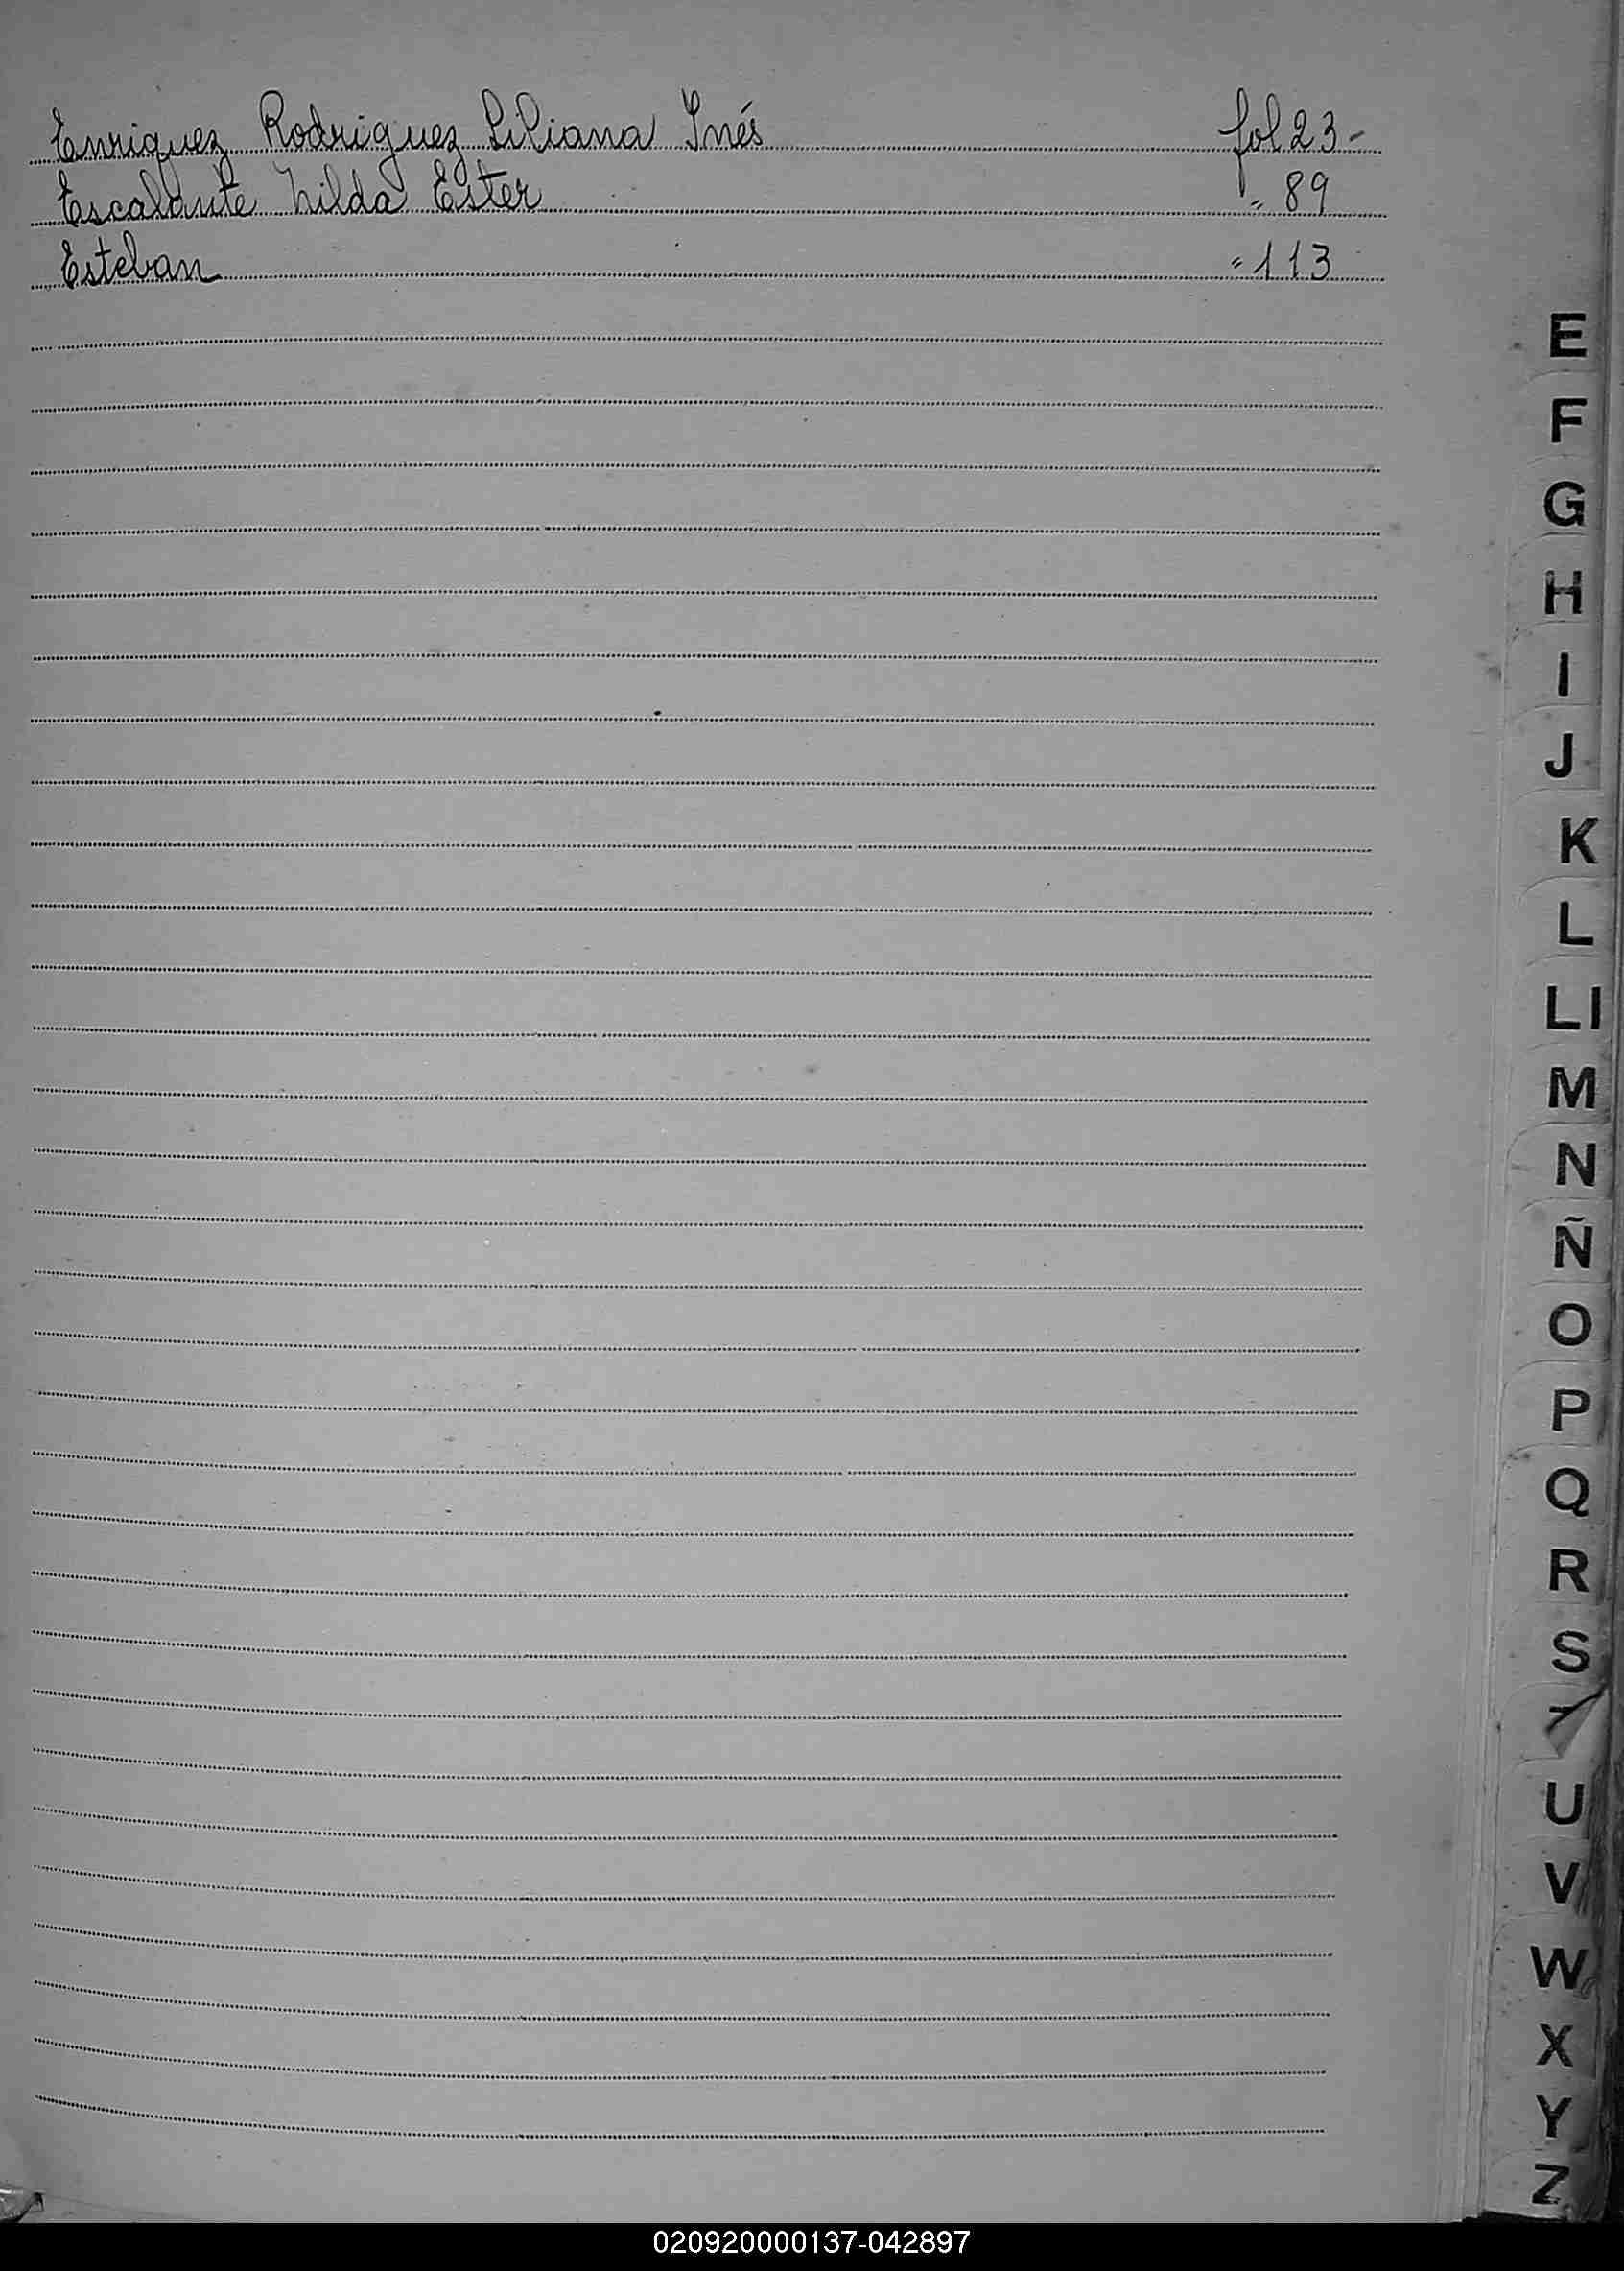 Enriquez Rodriguez Liliana Inés fol 23-
Escalante Hilda Ester " 89
Esteban " 113
E
F
G
H
I
J
K
L
Ll
M
N
Ñ
O
P
Q
R
S
U
V
W
X
Y
Z
020920000137-042897